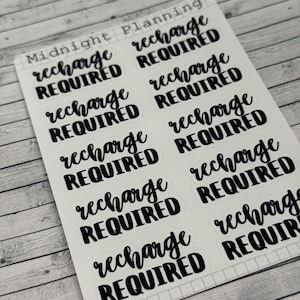 Midnight Planning
recharge REQUIRED
recharge REQUIRED
recharge REQUIRED
recharge REQUIRED
recharge REQUIRED
recharge REQUIRED
recharge REQUIRED
recharge REQUIRED
recharge REQUIRED
recharge REQUIRED